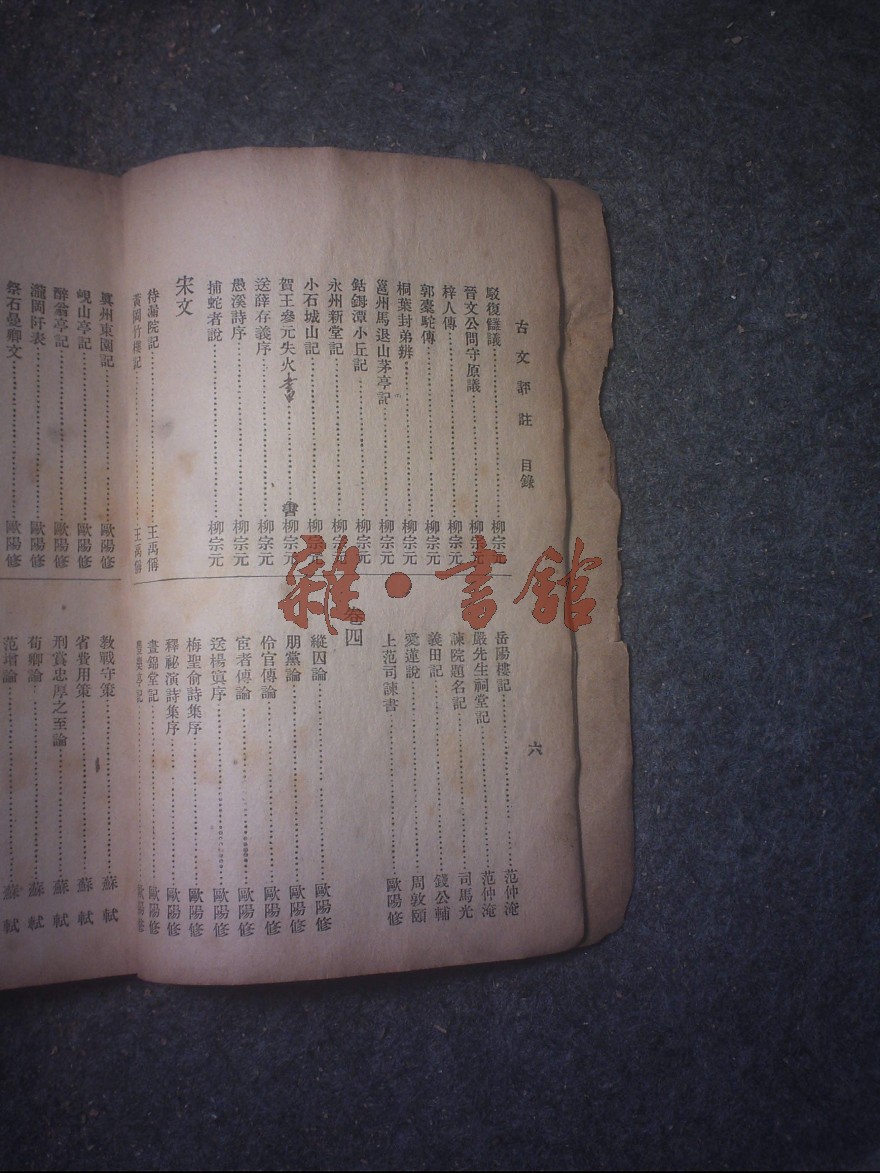 古文評註 目錄
六
駁復讎議 柳宗元
晉文公問守原議 柳宗元
梓人傳 柳宗元
郭橐駝傳 柳宗元
桐葉封弟辨 柳宗元
邕州馬退山茅亭記 柳宗元
鈷鉧潭小丘記 柳宗元
永州新堂記 柳宗元
小石城山記 柳宗元
賀王參元失火書 柳宗元
送薛存義序 柳宗元
愚溪詩序 柳宗元
捕蛇者說 柳宗元
宋文
待漏院記 王禹偁
黃岡竹樓記 王禹偁
岳陽樓記 范仲淹
嚴先生祠堂記 范仲淹
諫院題名記 司馬光
義田記 錢公輔
愛蓮說 周敦頤
上范司諫書 歐陽修
卷四
縱囚論 歐陽修
朋黨論 歐陽修
伶官傳論 歐陽修
宦者傳論 歐陽修
送楊寘序 歐陽修
梅聖俞詩集序 歐陽修
釋祕演詩集序 歐陽修
晝錦堂記 歐陽修
豐樂亭記 歐陽修
真州東園記 歐陽修
峴山亭記 歐陽修
醉翁亭記 歐陽修
瀧岡阡表 歐陽修
祭石曼卿文 歐陽修
教戰守策 蘇軾
省費用策 蘇軾
刑賞忠厚之至論 蘇軾
荀卿論 蘇軾
范增論 蘇軾
雜·書館